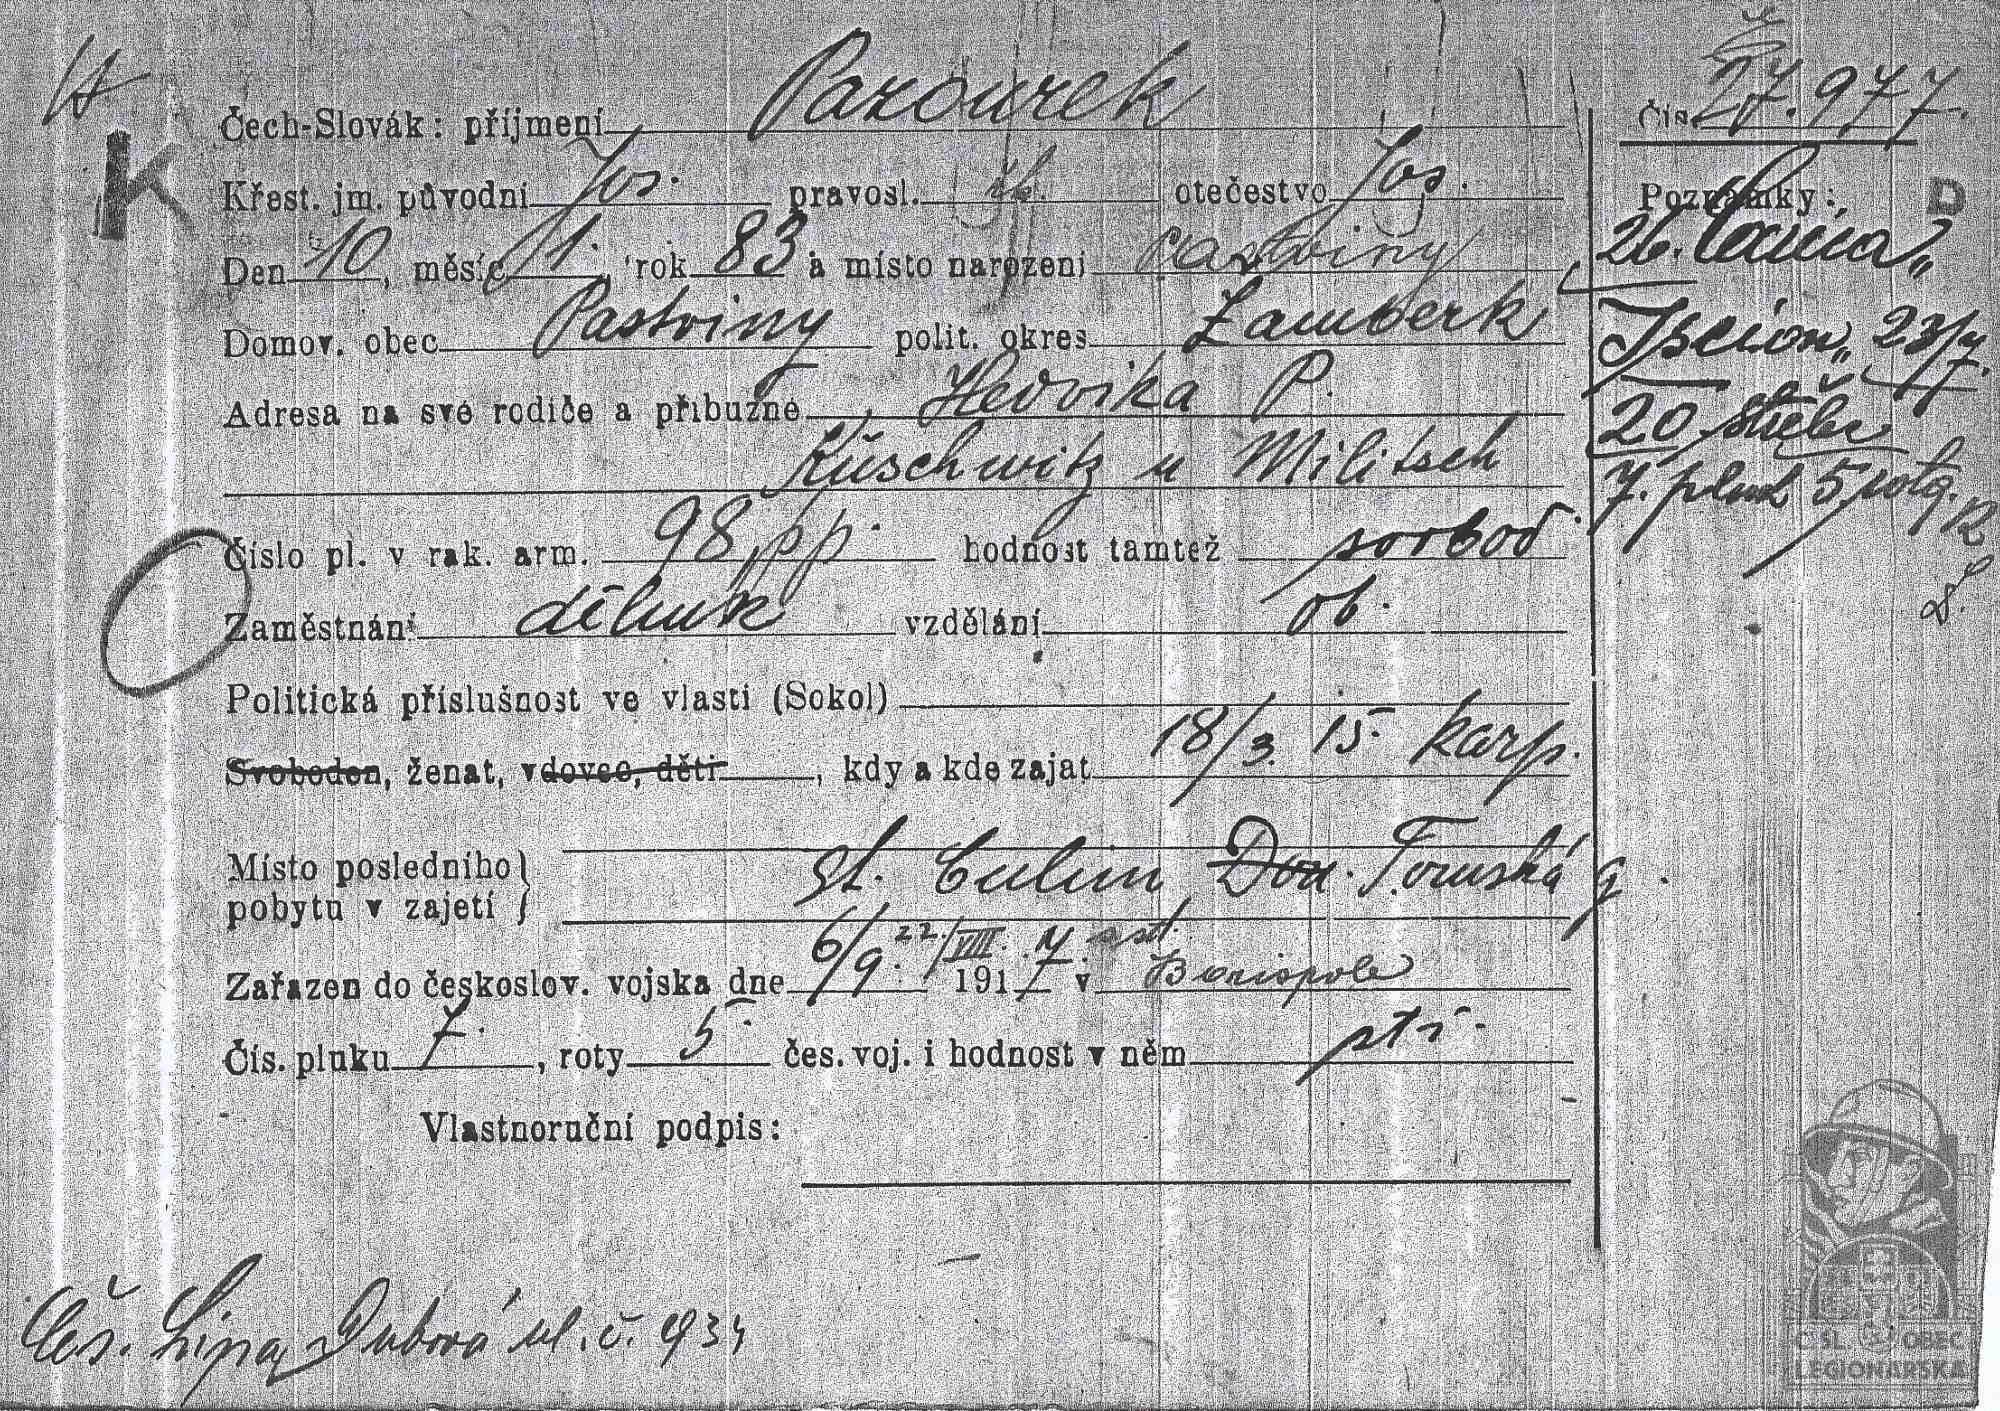 K
Čech-Slovák: příjmení Pazourek
Křest. jm. původní Jos. pravosl. otečestvo Jos.
Den 10, měsíc 11., rok 83 a místo narození Pastviny
Domov. obec Pastviny polit. okres Žamberk
Adresa na své rodiče a příbuzné Hedvika P.
Kuschwitz u Militsch
Číslo pl. v rak. arm. 98 pp. hodnost tamtéž svobod.
Zaměstnání dělník vzdělání ob.
Politická příslušnost ve vlasti (Sokol)
Svoboden, ženat, vdovec, děti, kdy a kde zajat 18/3. 15. Karp.
Místo posledního
pobytu v zajetí } st. Culim Don. Tomská g.
22./VIII. 17. st.
Zařazen do českoslov. vojska dne 6/9. 1917 v Borispole
Čís. pluku 7., roty 5. čes. voj. i hodnost v něm stř.
Vlastnoruční podpis:
Čís. 27.977.
Poznámky: D
26.
23/
20
7. pluk 5 rota.
Čes. Lípa, Dubová ul. č. 934
Č SL. OBEC
LEGIONÁŘSKÁ